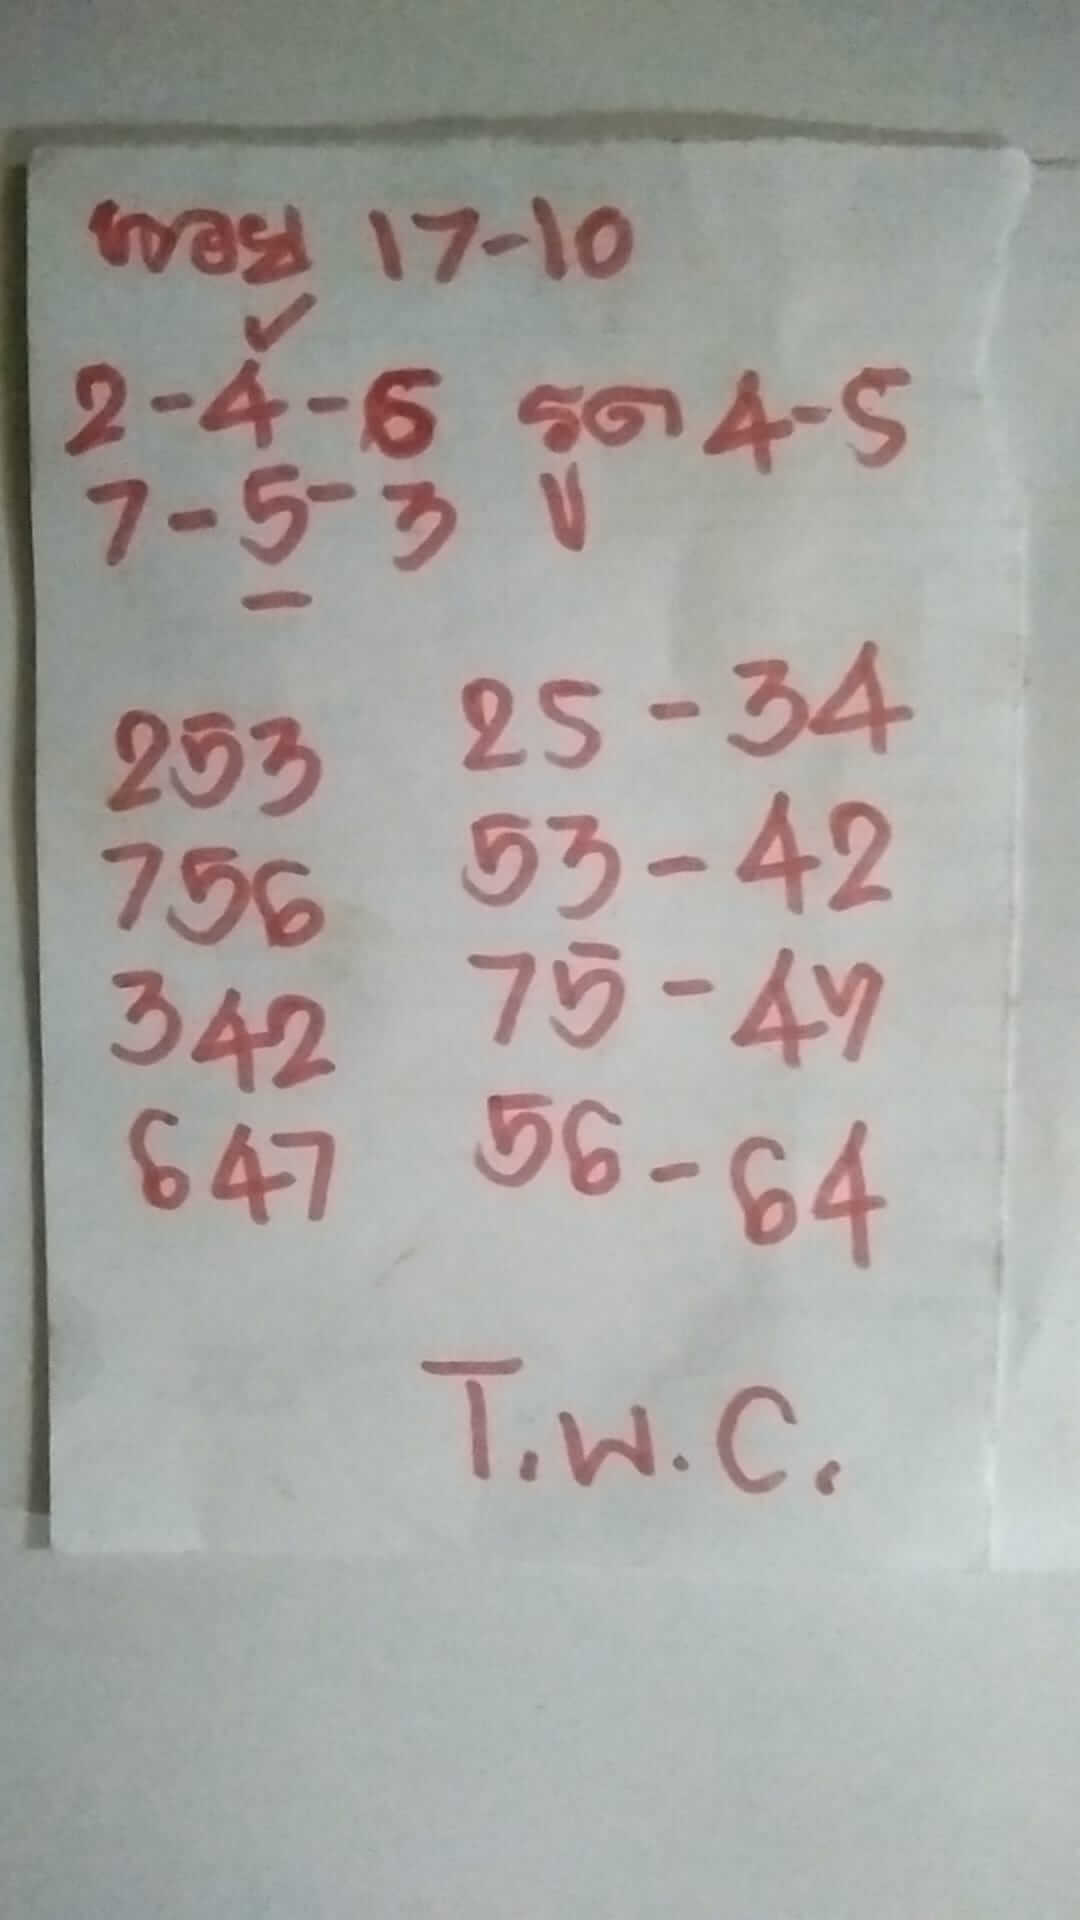 ฮอย 17-10
2-4-6 รูด 4-5
7-5-3
253 25-34
756 53-42
342 75-47
647 56-64
T.W.C.